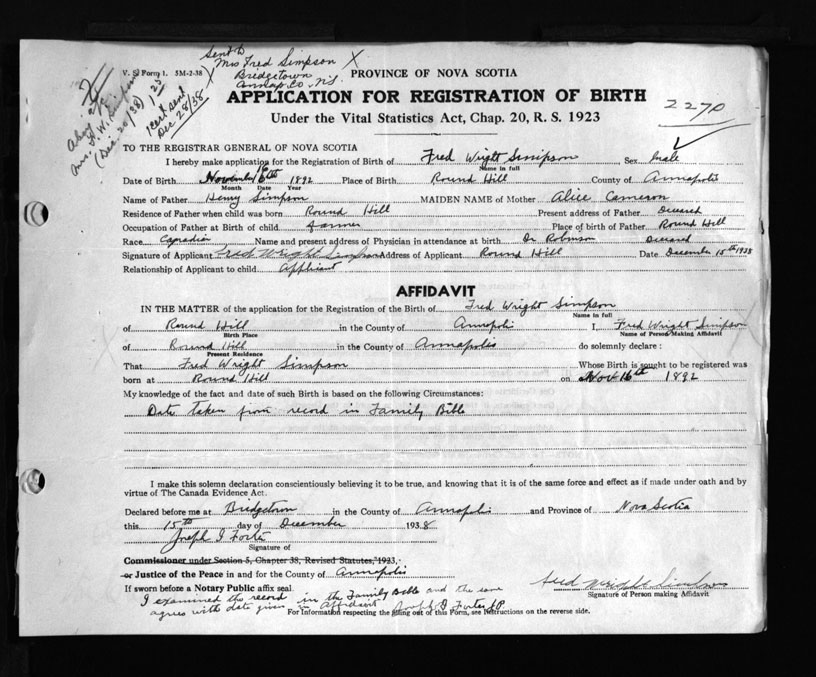 V. S. Form 1. 5M-2-38
Sent to
Mrs Fred Simpson X
Bridgetown
Annap. Co. N.S.
Cert sent
Dec 28/38
PROVINCE OF NOVA SCOTIA
APPLICATION FOR REGISTRATION OF BIRTH
2270
Under the Vital Statistics Act, Chap. 20, R. S. 1923
TO THE REGISTRAR GENERAL OF NOVA SCOTIA
I hereby make application for the Registration of Birth of Fred Wright Simpson Sex Male
Name in full
Date of Birth November 16th 1892 Place of Birth Round Hill County of Annapolis
Month Date Year
Name of Father Henry Simpson MAIDEN NAME of Mother Alice Cameron
Residence of Father when child was born Round Hill Present address of Father Deceased
Occupation of Father at Birth of child farmer Place of birth of Father Round Hill
Race Canadian Name and present address of Physician in attendance at birth Dr Robinson Deceased
Signature of Applicant Fred Wright Simpson Address of Applicant Round Hill Date December 15th 1938
Relationship of Applicant to child Applicant
AFFIDAVIT
IN THE MATTER of the application for the Registration of the Birth of Fred Wright Simpson
Name in full
of Round Hill in the County of Annapolis I, Fred Wright Simpson
Birth Place Name of Person Making Affidavit
of Round Hill in the County of Annapolis do solemnly declare :
Present Residence
That Fred Wright Simpson Whose Birth is sought to be registered was
born at Round Hill on Nov 16th 1892
My knowledge of the fact and date of such Birth is based on the following Circumstances:
Date taken from record in Family Bible
I make this solemn declaration conscientiously believing it to be true, and knowing that it is of the same force and effect as if made under oath and by
virtue of The Canada Evidence Act.
Declared before me at Bridgetown in the County of Annapolis and Province of Nova Scotia
this 15th day of December 1938
Joseph I Foster
Signature of
Commissioner under Section 5, Chapter 38, Revised Statutes, 1923,
or Justice of the Peace in and for the County of Annapolis
Fred Wright Simpson
If sworn before a Notary Public affix seal.
Signature of Person making Affidavit
I examined the record in the Family Bible and the same
agrees with date given in Affidavit Joseph I Foster J.P.
For Information respecting the filling out of this Form, see Instructions on the reverse side.